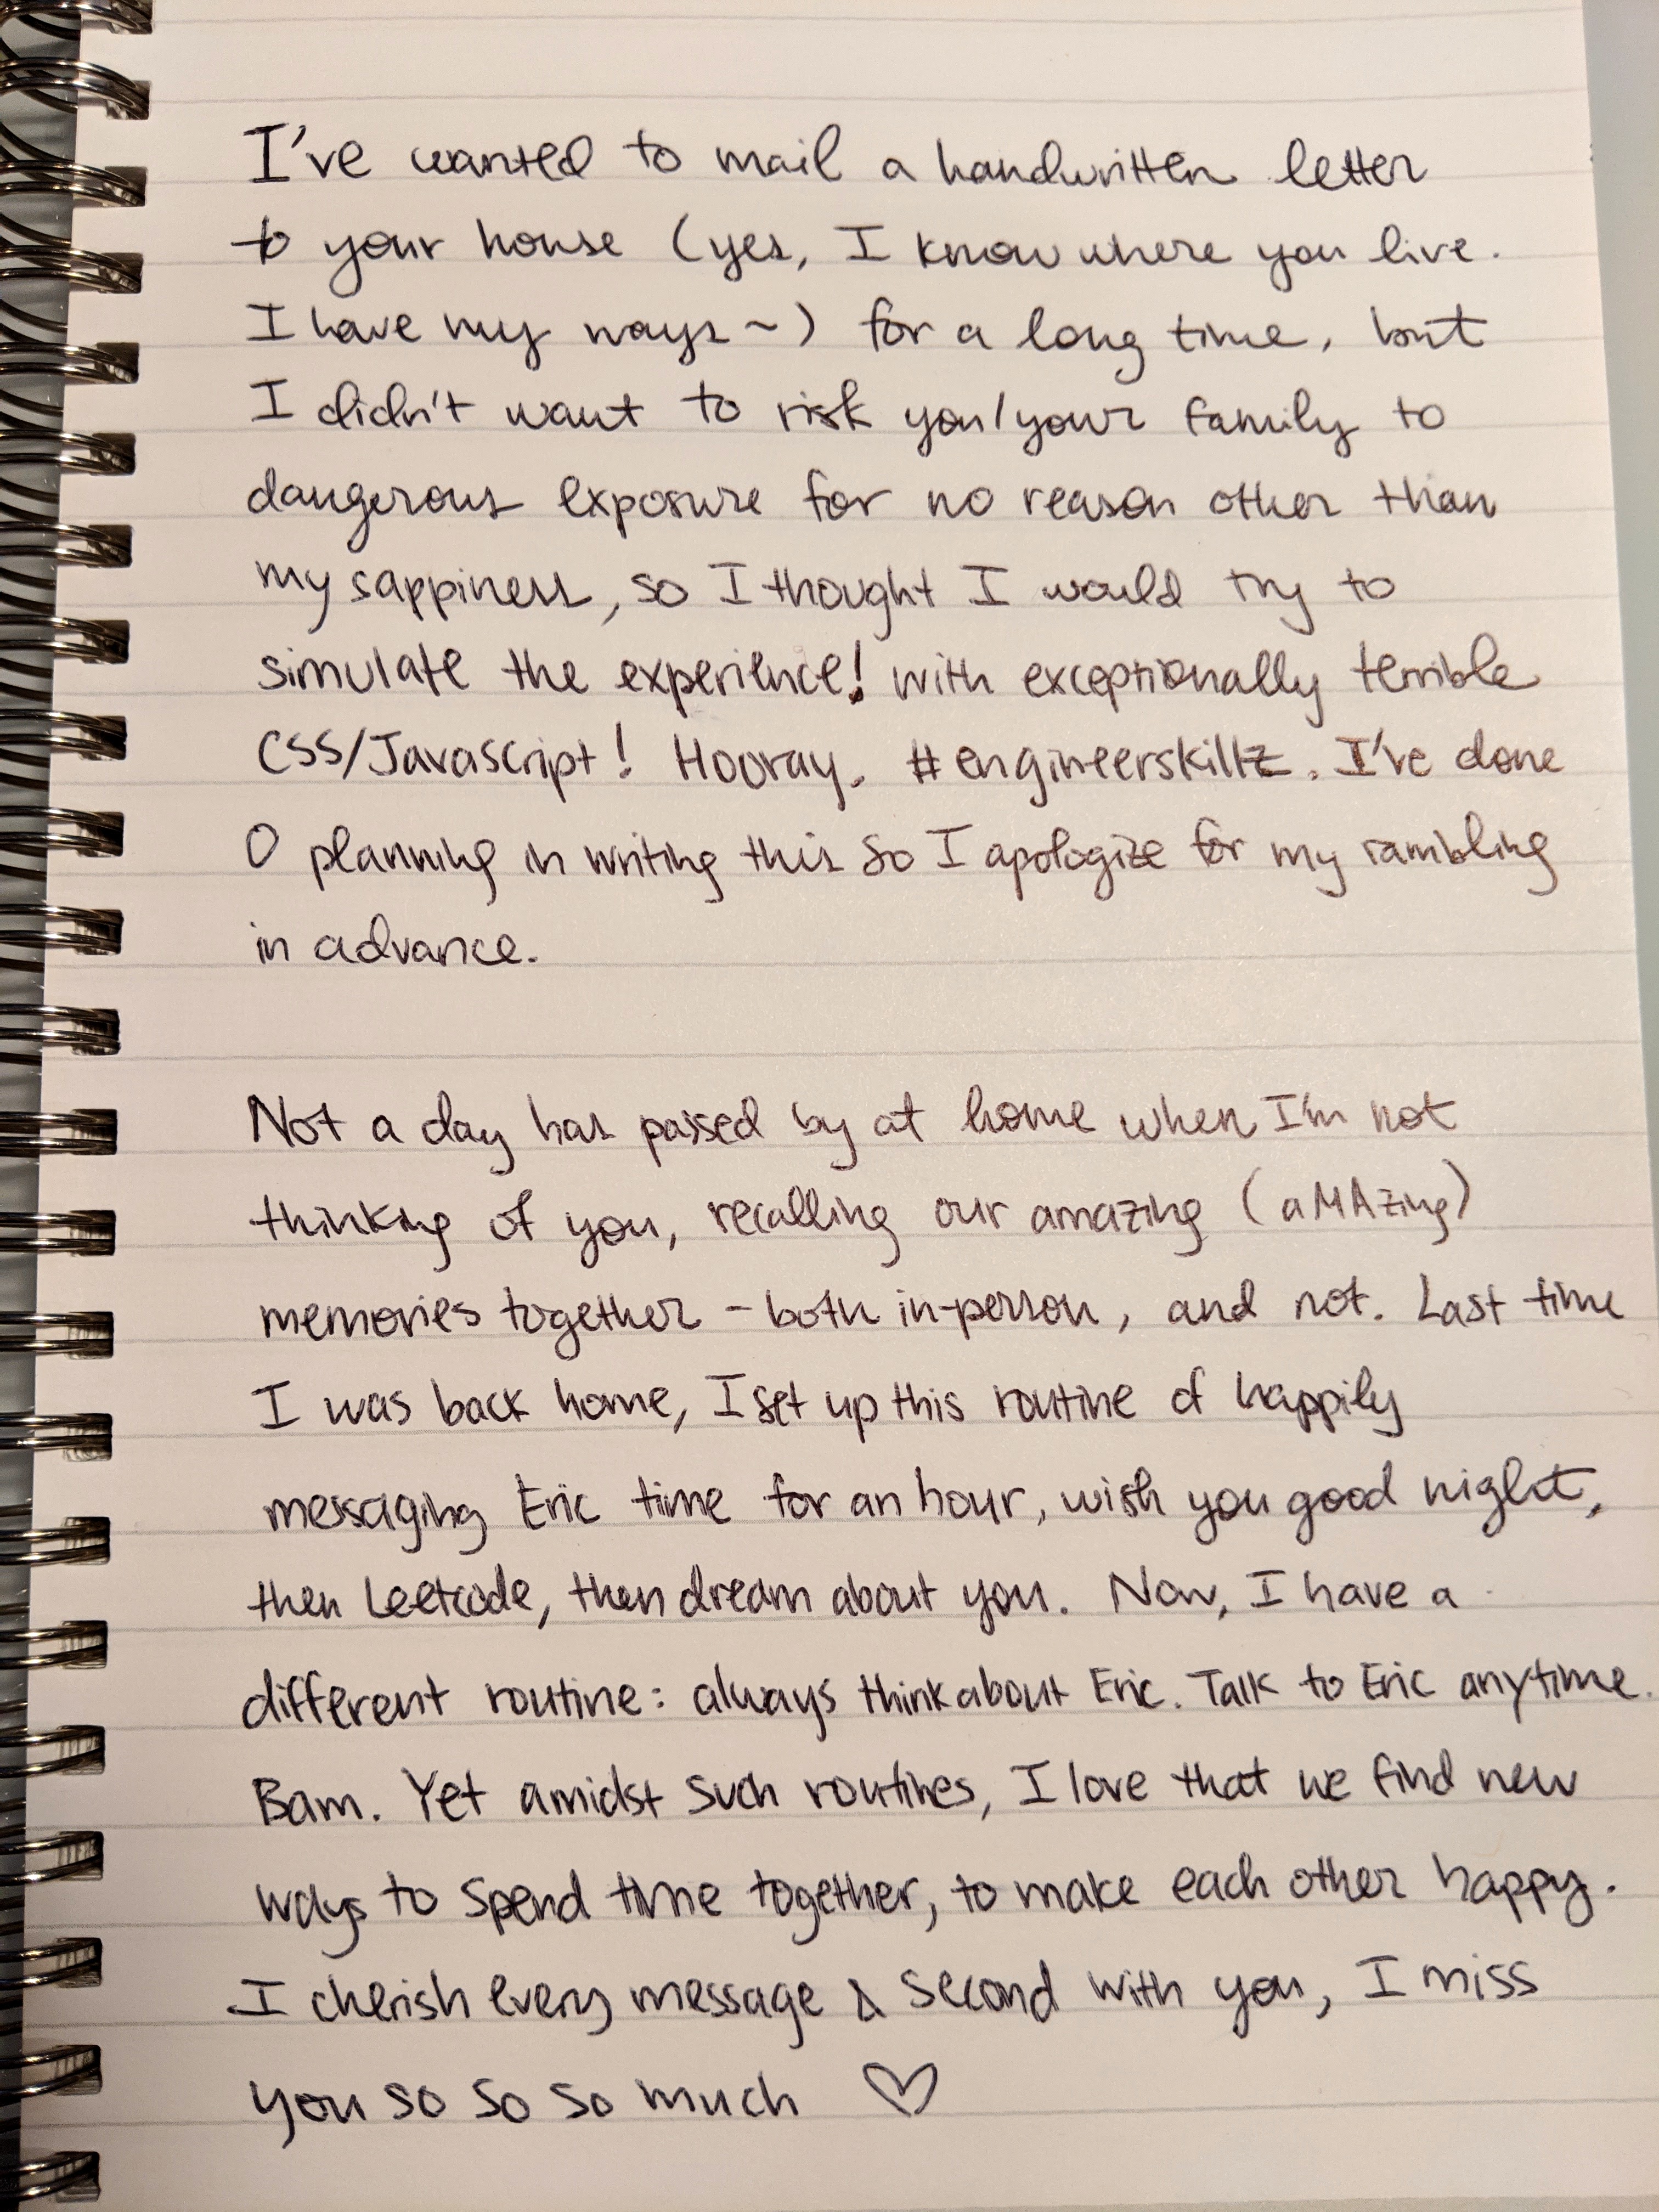 I've wanted to mail a handwritten letter
to your house (yes, I know where you live.
I have my ways~) for a long time, but
I didn't want to risk you/your family to
dangerous exposure for no reason other than
my sappiness, so I thought I would try to
simulate the experience! with exceptionally terrible
CSS/Javascript! Hooray. #engineerskillz. I've done
0 planning in writing this so I apologize for my rambling
in advance.
Not a day has passed by at home when I'm not
thinking of you, recalling our amazing (aMAzing)
memories together - both in-person, and not. Last time
I was back home, I set up this routine of happily
messaging Eric time for an hour, wish you good night,
then Leetcode, then dream about you. Now, I have a
different routine: always think about Eric. Talk to Eric anytime.
Bam. Yet amidst such routines, I love that we find new
ways to spend time together, to make each other happy.
I cherish every message & second with you, I miss
you so so so much ♡